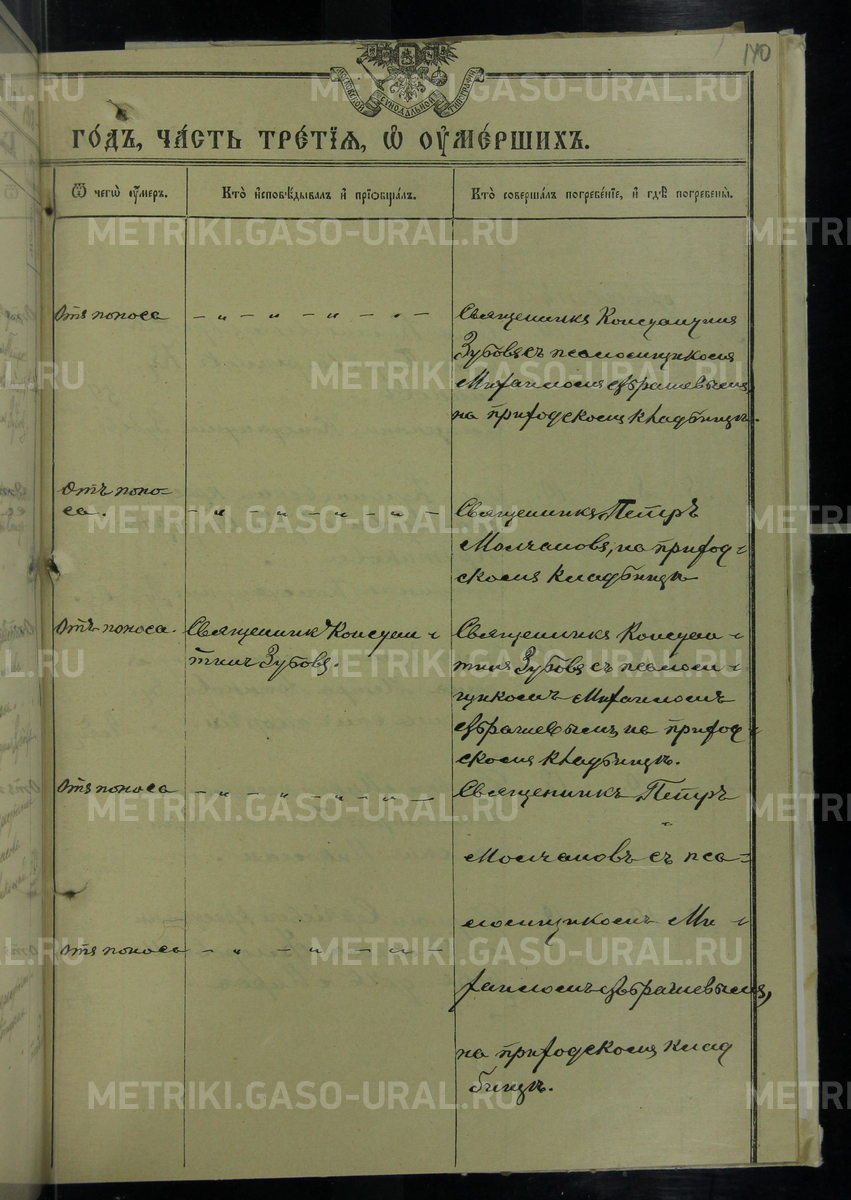 140
МОСКОВСКОЙ СѴНОДАЛЬНОЙ ТИПОГРАФІИ
ГО́ДЪ, ЧА́СТЬ ТРЕ́ТІѦ, Ѽ ОУМЕ́РШИХЪ.
Ѿ чегѡ̀ ᲂу҆́меръ.
Кто̀ и҆сповѣ́дывалъ и҆ пріѻбща́лъ.
Кто̀ соверша́лъ погребе́ніе, и҆ гдѣ̀ погребены̀.
Отъ поноса
— „ — „ — „ — „ —
Священникъ Константинъ
Зубовъ съ псаломщикомъ
Михаиломъ
на приходскомъ кладбищѣ.
Отъ поно-
са.
— „ — „ — „ — „ —
Священникъ Петръ
Молчановъ, на приход-
скомъ кладбищѣ
Отъ поноса.
Священникъ Констан-
тинъ Зубовъ.
Священникъ Констан-
тинъ Зубовъ съ псалом-
щикомъ Михаиломъ
на приход-
скомъ кладбищѣ.
Отъ поноса
— „ — „ — „ — „ —
Священникъ Петръ
Молчановъ съ пса-
ломщикомъ Ми-
хаиломъ
на приходскомъ клад
бищѣ.
Отъ поноса
— „ — „ — „ —
METRIKI.GASO-URAL.RU